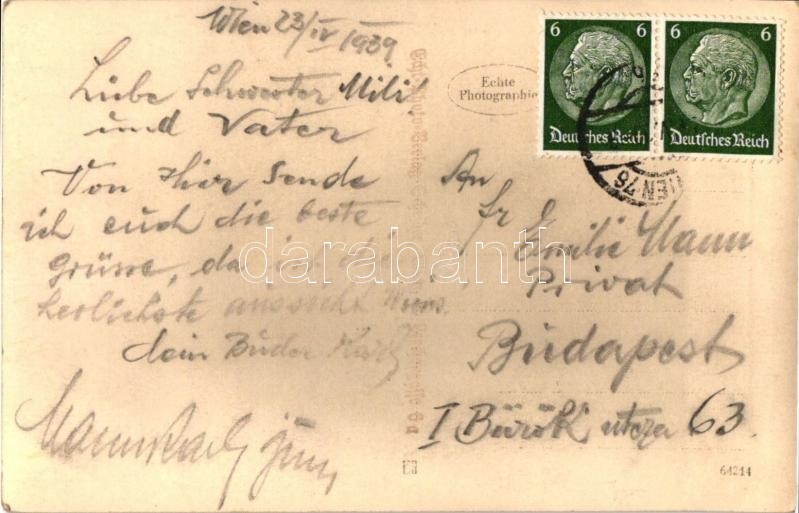 Wien 23/IV 1939
Liebe Schwester Mili
und Vater
Von Hier Sende
ich euch die beste
grüsse, da ist die
herlichste aussicht Wiens.
dein Buder Karl
Mann Karl jun.
Echte
Photographie
6 6
Deutsches Reich Deutsches Reich
WIEN 76
An
Fr Emilie Mann
Privat
Budapest
I Börök utcza 63.
64244
darabanth